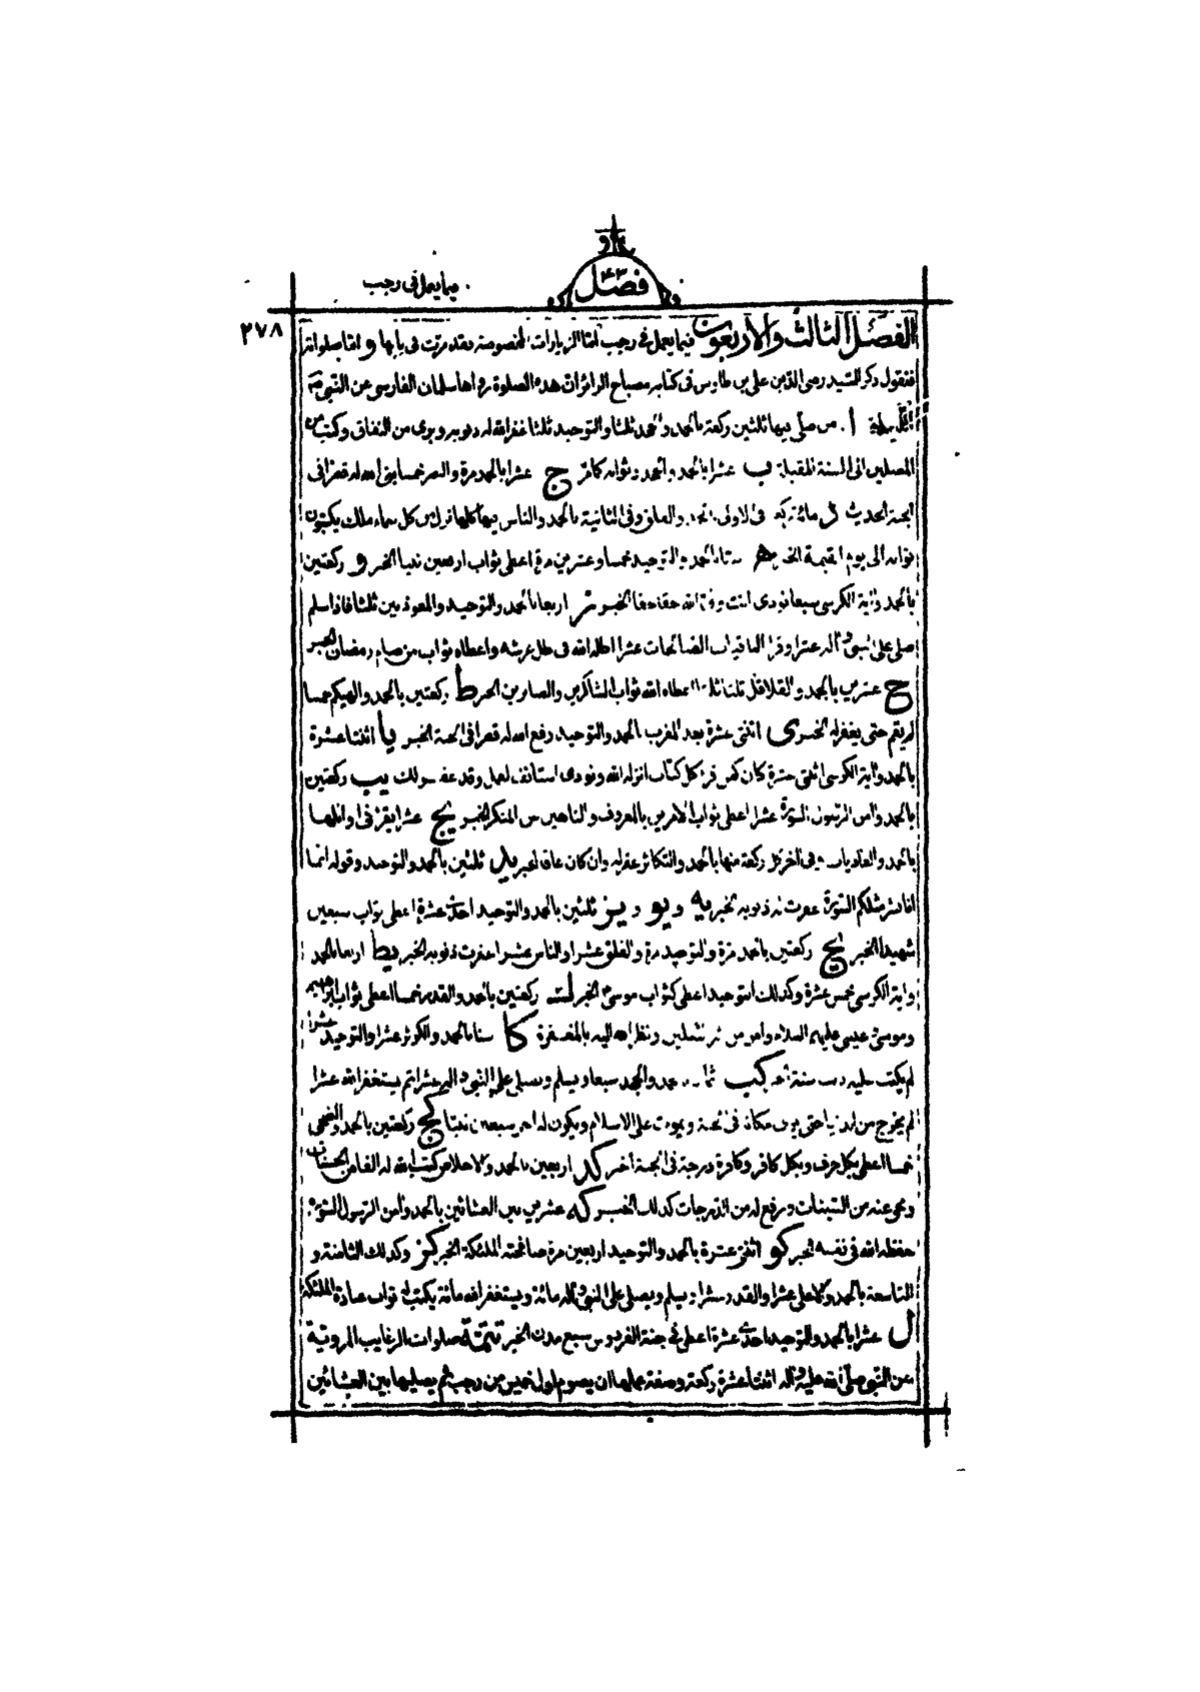 فصل ۴۳
فيما يعمل فى رجب
٢٧٨
الفصل الثالث والاربعون فيما يعمل فى رجب امّا الزيارات المخصوصة فقد مرّت فى بابها و امّا صلواته
فنقول ذكر السّيد رضى الدّين على بن طاوس فى كتابه مصباح الزائر ان هذه الصلوة رواها سلمان الفارسى عن النّبى
اوّل ليلة ا من صلّى فيها ثلثين ركعة بالحمد والجحد ثلثا والتوحيد ثلثا غفر الله له ذنوبه وبرى من النفاق وكتب من
المصلين الى السنة المقبلة ب عشرا بالحمد والجحد وثوابه كما مر ج عشرا بالحمد مرة والنصر خمسا بنى الله له قصرا فى
الجنة الحديث د مائة ركعة فى الاولى بالحمد والفلق وفى الثانية بالحمد والناس فيها كلها نزل من كل سماء ملك يكتبون
ثوابه الى يوم القيمة الخبر ه ستا بالحمد والتوحيد خمسا وعشرين مرة اعطى ثواب اربعين نبيا الخبر و ركعتين
بالحمد واية الكرسى سبعا نودى انت ولى الله حقا حقا الخبر ز اربعا بالحمد والتوحيد والمعوذتين ثلثا فاذا سلم
صلى على النبى واله عشرا وقرا الباقيات الصّالحات عشرا اظله الله فى ظل عرشه واعطاه ثواب من صام رمضان الخبر
ح عشرين بالحمد والقلاقل ثلثا ثلثا اعطاه الله ثواب الشاكرين والصابرين الخبر ط ركعتين بالحمد والهيكم خمسا
لم يقم حتى يغفر له الخبر ى اثنتى عشرة بعد المغرب بالحمد والتوحيد رفع الله له قصرا فى الجنة الخبر يا اثنتا عشرة
بالحمد واية الكرسى اثنتى عشرة كان كمن قرا كل كتاب انزله الله ونودى استانف العمل وقد غفر لك يب ركعتين
بالحمد وامن الرسول السورة عشرا اعطى ثواب الامرين بالمعروف والناهين عن المنكر الخبر يج عشرا يقرء فى اوائلها
بالحمد والعاديات وفى اخر كل ركعة منها بالحمد والتكاثر غفر له وان كان عاقا الخبر يد ثلثين بالحمد والتوحيد وقوله انما
انا بشر مثلكم السّورة غفرت له ذنوبه الخبر يه و يو و يز ثلثين بالحمد والتوحيد احدى عشرة اعطى ثواب سبعين
شهيدا الخبر يح ركعتين بالحمد مرة والتوحيد مرة والفلق عشرا والناس عشرا غفرت ذنوبه الخبر يط اربعا بالحمد
واية الكرسى خمس عشرة وكذلك التوحيد اعطى كثواب موسى الخبر ك ركعتين بالحمد والقدر خمسا اعطى ثواب ابرهيم
وموسى وعيسى عليهم السلام وامن من شر الثقلين ونظر الله اليه بالمغفرة كا ستا بالحمد والكوثر عشرا والتوحيد عشرا
لم يكتب عليه ذنب سنة الخبر كب ثمانيا بالحمد والجحد سبعا ويسلم ويصلى على النبى واله عشرا ثم يستغفر الله عشرا
لم يخرج من الدنيا حتى يرى مكانه فى الجنة ويموت على الاسلام ويكون له اجر سبعين نبيا كج ركعتين بالحمد والضحى
خمسا اعطى بكل حرف وبكل كافر وكافرة درجة فى الجنة الخبر كد اربعين بالحمد والاخلاص كتب الله له الفا من الحسنات
ومحى عنه من السّيئات ورفع له من الدّرجات كذلك الخبر كه عشرين بين العشائين بالحمد وامن الرّسول السّورة
حفظه الله فى نفسه الخبر كو اثنتى عشرة بالحمد والتوحيد اربعين مرة صافحته الملئكة الخبر كز وكذلك الثامنة و
التاسعة بالحمد والاعلى عشرا والقدر عشرا ويسلم ويصلى على النبى واله مائة ويستغفر الله مائة يكتب له ثواب عبادة الملئكة
ل عشرا بالحمد والتوحيد احدى عشرة اعطى فى جنة الفردوس سبع مدن الخبر تتمّة صلوات الرغايب المروية
عن النّبى صلّى الله عليه واله اثنتا عشرة ركعة وصفة عملها ان يصوم اول خميس من رجب ثم يصليها بين العشائين